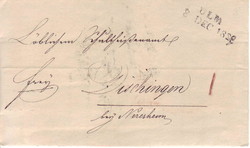 ULM
DEC 183
Löblichem Schultheißenamt
frey
Dischingen
bey Neresheim